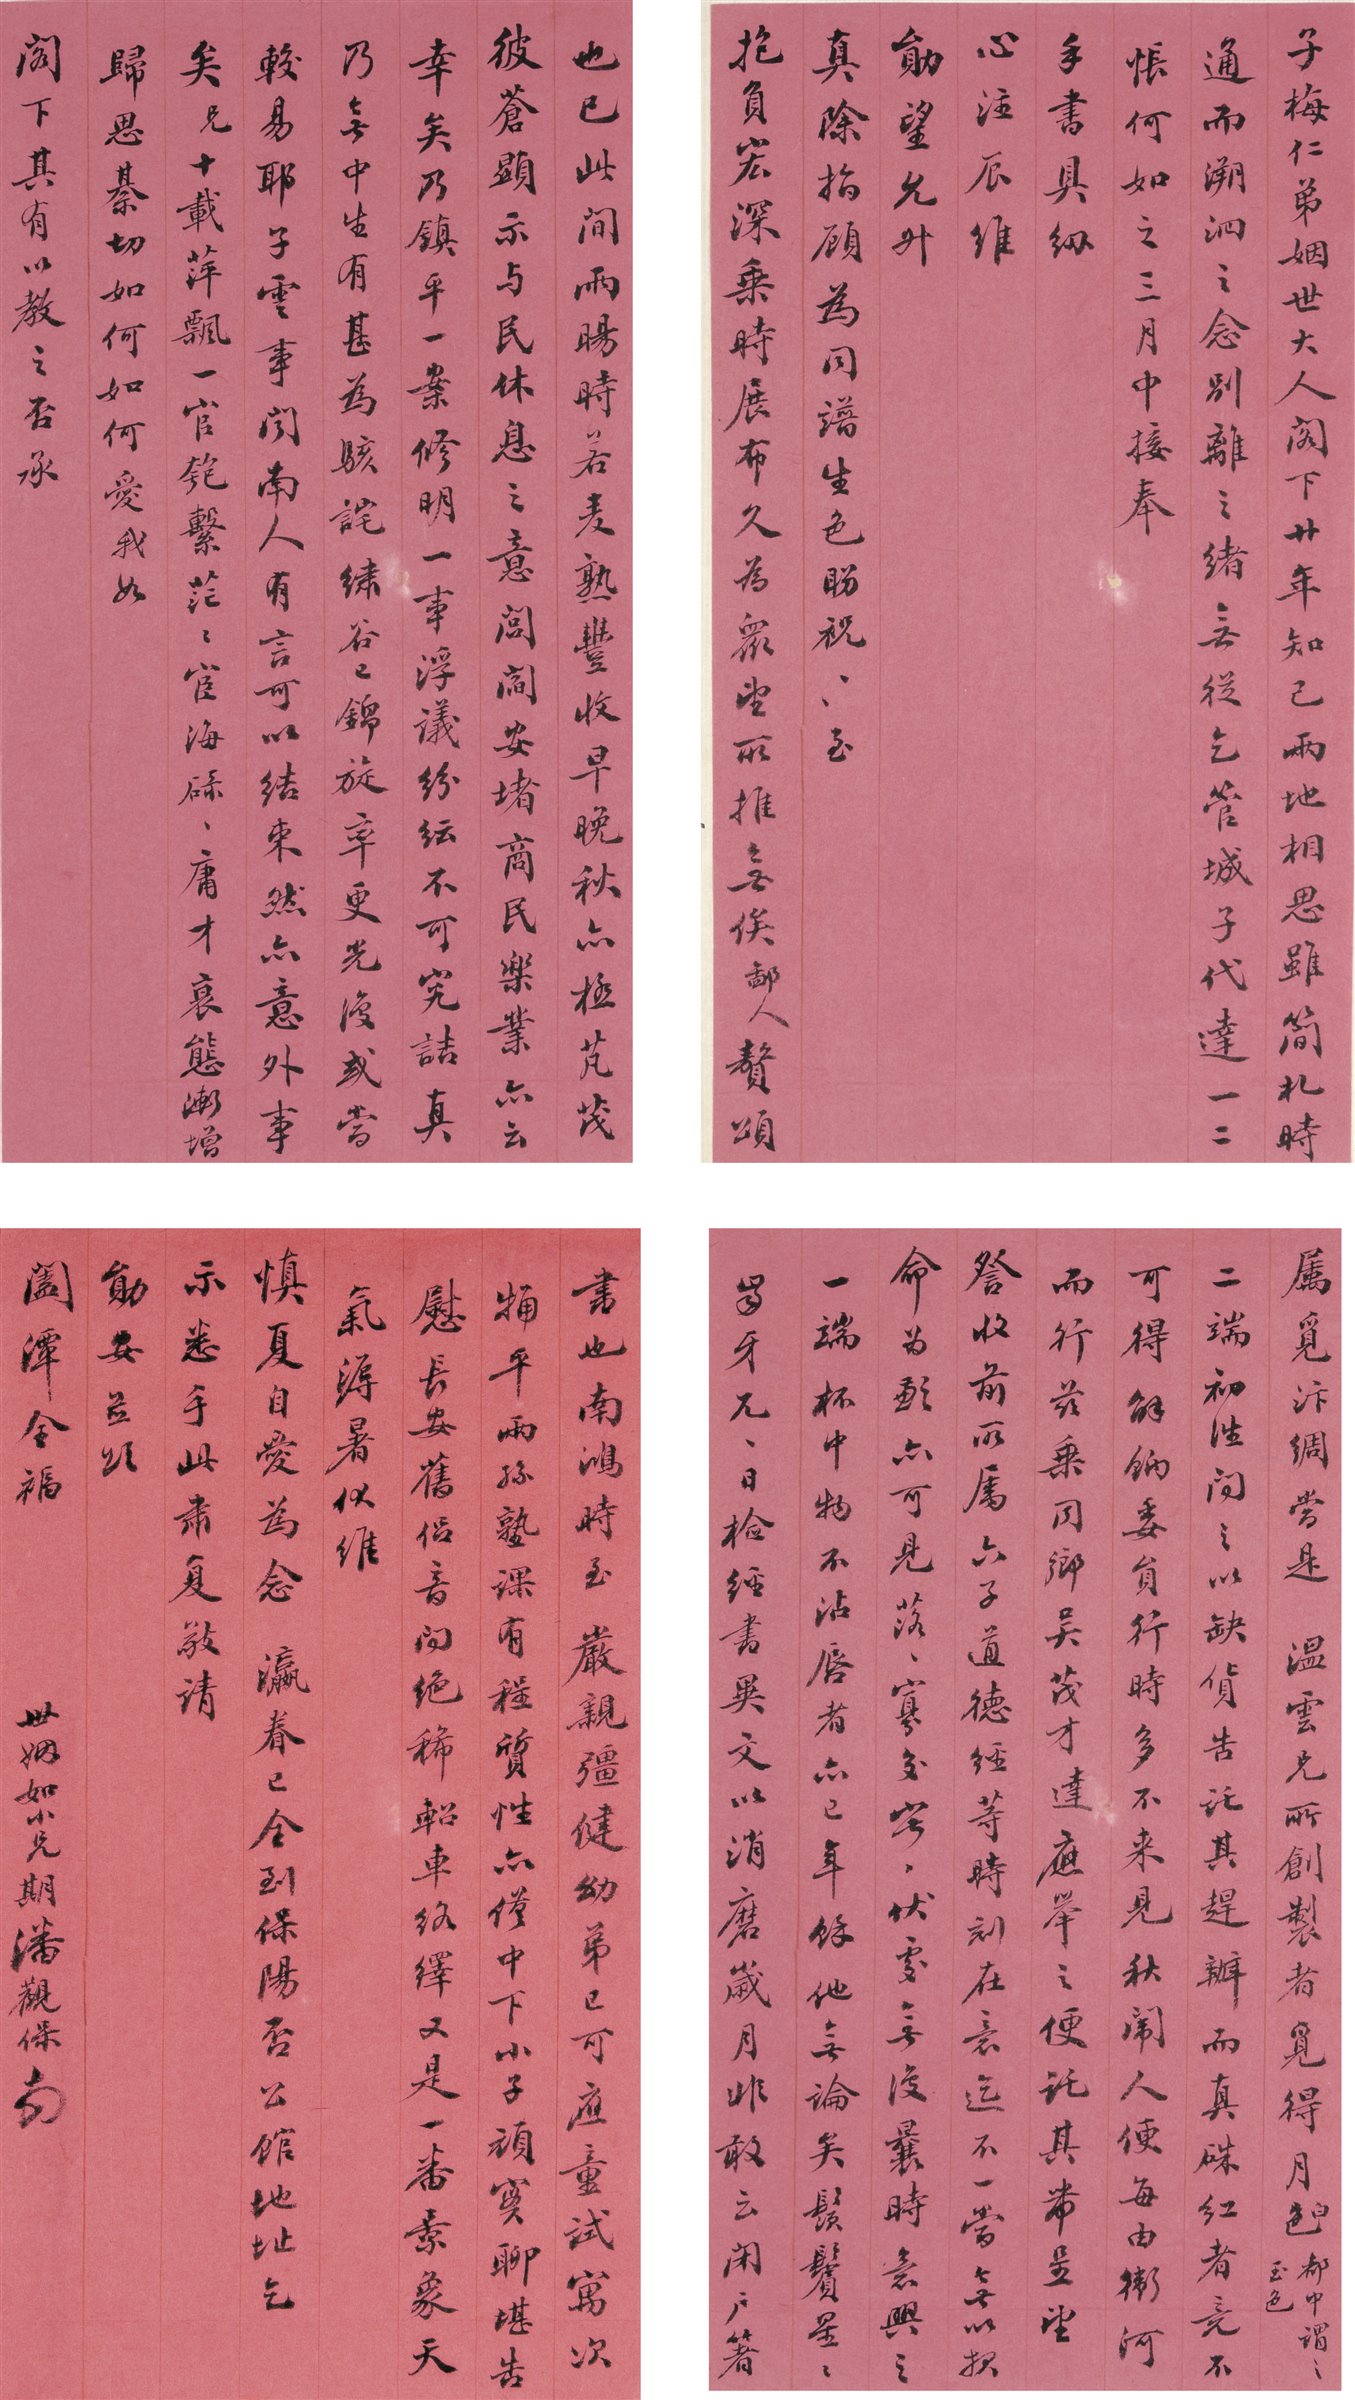 子梅仁弟姻世大人閣下廿年知己兩地相思雖簡札時
通而溯洄之念別離之緒無從乞管城子代達一二
悵何如之三月中接奉
手書具紉
心注辰維
勛望允升
真除指顧為同譜生色盼祝〻至
抱負宏深乘時展布久為眾望所推無俟鄙人贅頌
也已此間雨暘時若麦熟豐收早晚秋亦極芃茂
彼蒼顯示与民休息之意閭閻安堵商民樂業亦云
幸矣乃鎮平一案修明一事浮議紛紜不可究詰真
乃無中生有甚為駭詫繡谷已錦旋卒更光復或當
較易耶子雲事閱南人有言可以結束然亦意外事
矣兄十載萍飄一官匏繫茫〻宦海碌〻庸才衰態漸增
歸思綦切如何如何愛我如
閣下其有以教之否承
屬覓汴綢當是 溫雲兄所創製者覓得月白色都中謂之玉色
二端初泩問之以缺貨告託其趕辦而真硃紅者竟不
可得解餉委員行時多不来見秋闈人便每由衛河
而行茲乘同鄉吳茂才達應舉之便託其帶呈望
詧收前所屬六子道德經等時刻在意迄不一當無以報
命為歉亦可見落〻寡交岑〻伏處無復曩時意興之
一端杯中物不沾唇者亦已年餘他無論矣鬚鬢星〻
當牙兀〻日檢經書異文以消磨歲月非敢云閉户著
書也南鴻時至 嚴親彊健幼弟已可應童試寓次
穉平兩孫塾課有程質性亦僅中下小子頑冥聊堪告
慰長安舊侶音問绝稀軺車络繹又是一番景象天
氣溽暑伏維
慎夏自愛為念 瀛眷已全到保陽否公館地址乞
示悉手此肅复敬請
勛安並頌
闔潭全福 世姻如小兄期潘觀保頓